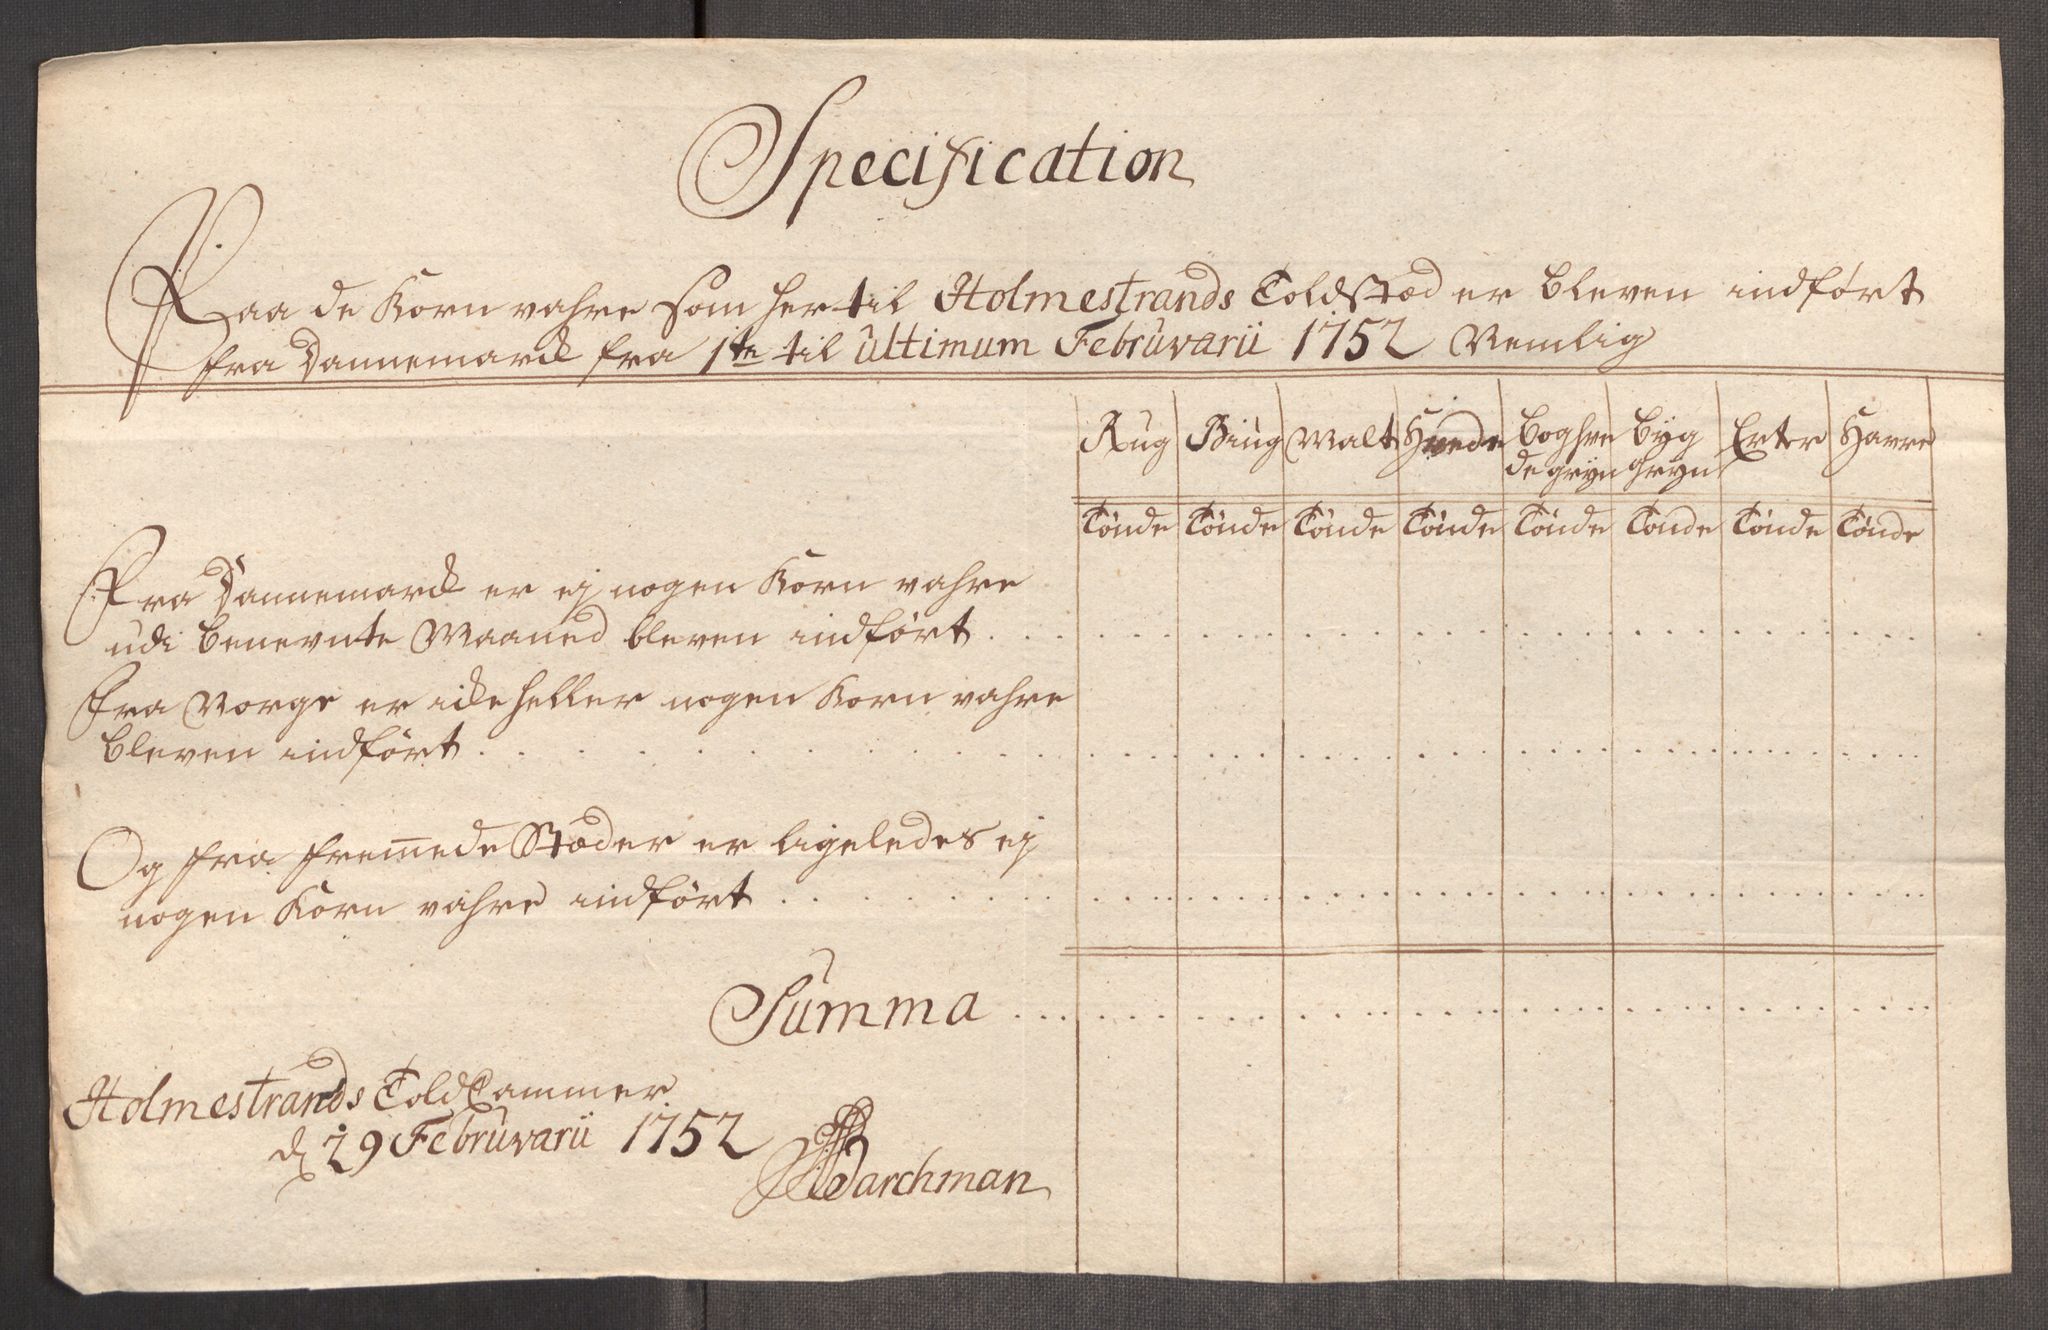 Specification
Paa de Korn vahre som her til Holmestrands Toldstæd er bleven indført
fra Dannemarck fra 1te til ultimum Februvarii 1752 Nemlig
Rug Biug Malt Hvede Boghve Byg Erter Havre
de gryn gryn
Tönde Tönde Tönde Tönde Tönde Tönde Tönde Tönde
Fra Dannemarck er ej nogen Korn vahre
udi benevnte Maaned bleven indført
Fra Norge er icke heller nogen Korn vahre
bleven indført
Og fra fremede Stæder er ligeledes ej
nogen Korn vahre indført
Summa
Holmestrands Told Cammer
d 29 Februvarii 1752